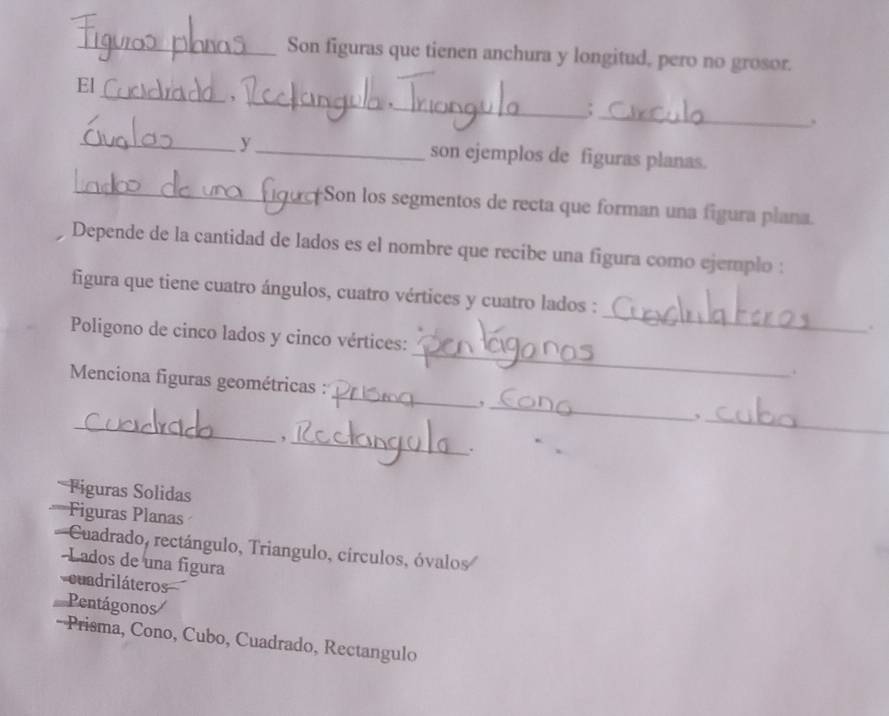 Figuras planas Son figuras que tienen anchura y longitud, pero no grosor.
El Cuadrado, Rectangulo, Triangulo; Circulo,
óvalos y son ejemplos de figuras planas.
Lados de una figura Son los segmentos de recta que forman una figura plana.
Depende de la cantidad de lados es el nombre que recibe una figura como ejemplo :
figura que tiene cuatro ángulos, cuatro vértices y cuatro lados : Cuadrilateros.
Poligono de cinco lados y cinco vértices: pentágonos.
Menciona figuras geométricas : prisma, Cono, cubo
Cuadrado, Rectangulo.
-Figuras Solidas
-Figuras Planas
-Cuadrado, rectángulo, Triangulo, círculos, óvalos
-Lados de una figura
-cuadriláteros
-Pentágonos
-Prisma, Cono, Cubo, Cuadrado, Rectangulo